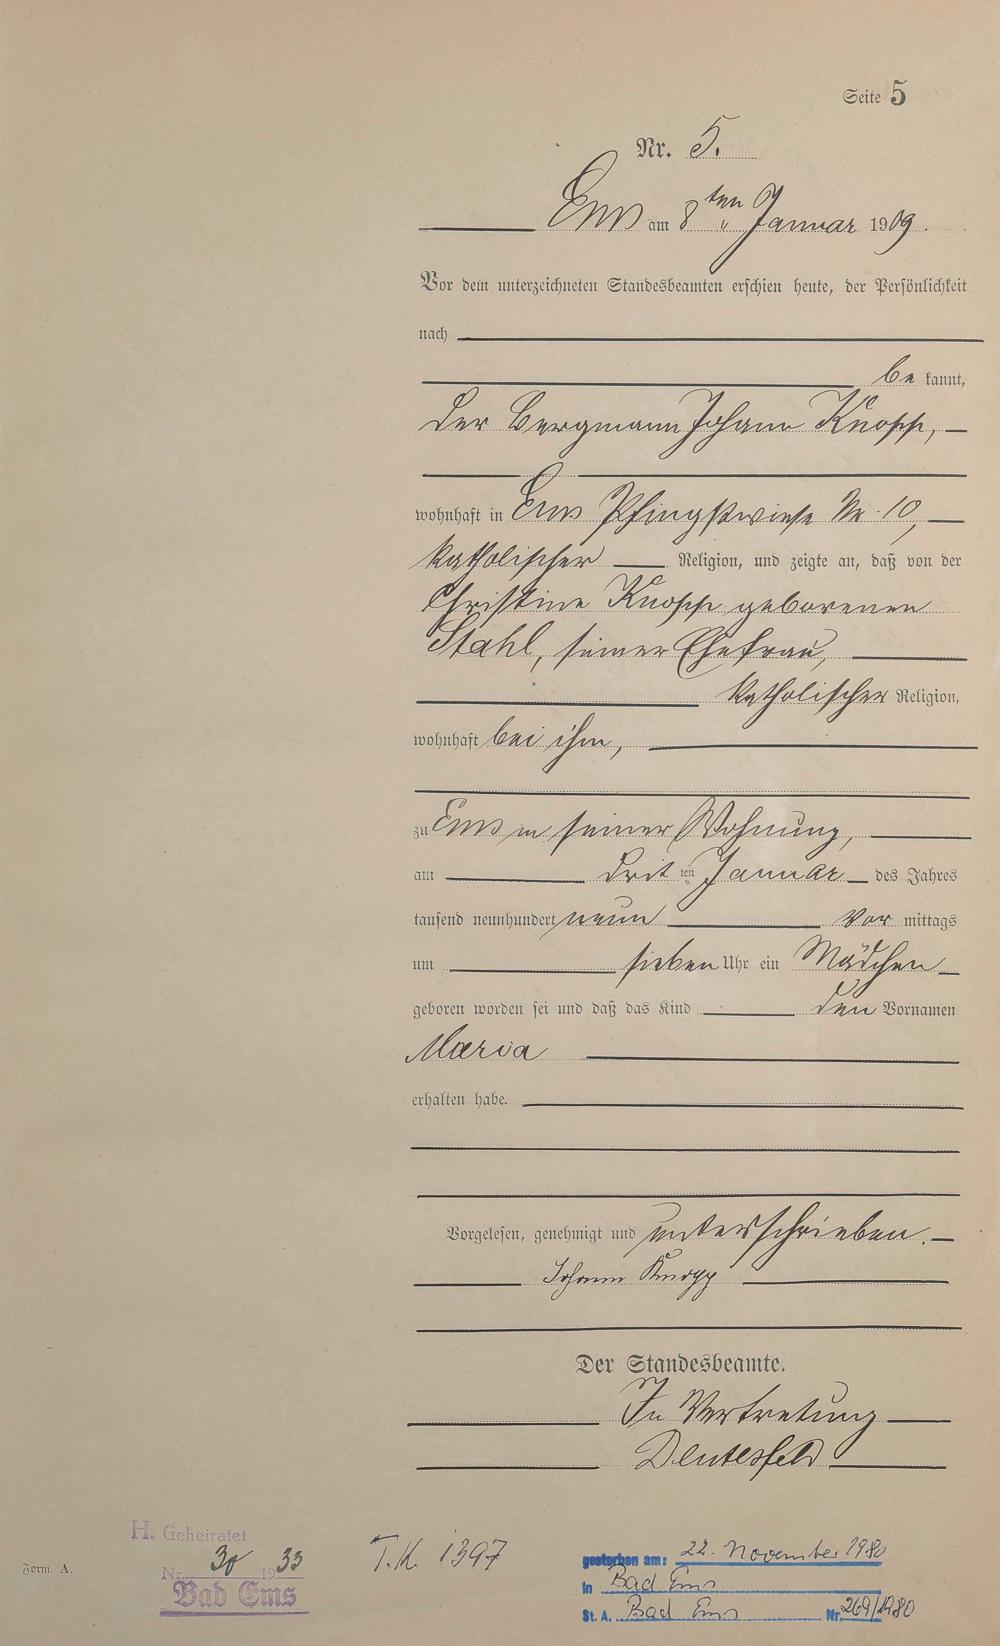 Seite 5
Nr. 5.
Ems am 8ten Januar 1909.
Vor dem unterzeichneten Standesbeamten erschien heute, der Persönlichkeit
nach
be kannt,
der Bergmann Johann Knopp,
wohnhaft in Ems Pfingstwiese Nr. 10,
katholischer Religion, und zeigte an, daß von der
Christine Knopp geborenen
Stahl, seiner Ehefrau,
katholischer Religion,
wohnhaft bei ihm,
zu Ems in seiner Wohnung,
am drit ten Januar des Jahres
tausend neunhundert neun Vor mittags
um sieben Uhr ein Mädchen
geboren worden sei und daß das Kind den Vornamen
Maria
erhalten habe.
Vorgelesen, genehmigt und unterschrieben.
Johann Knopp
Der Standesbeamte.
In Vertretung
H. Geheiratet
Nr. 30 1933
Bad Ems
Form. A.
T.K. 1397
gestorben am: 22. November 1980
in Bad Ems
St. A. Bad Ems Nr. 269/1980